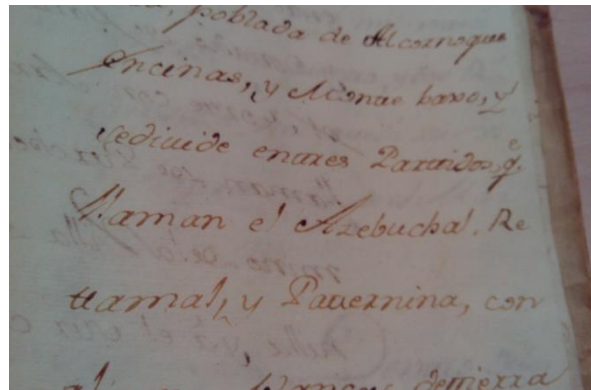 poblada de Alcornoque
encinas, y Monte baxo, y
sediuide entres Partidos, q.e
llaman el Azebuchal. Re
ttamal, y Pauernina, con
al demierra